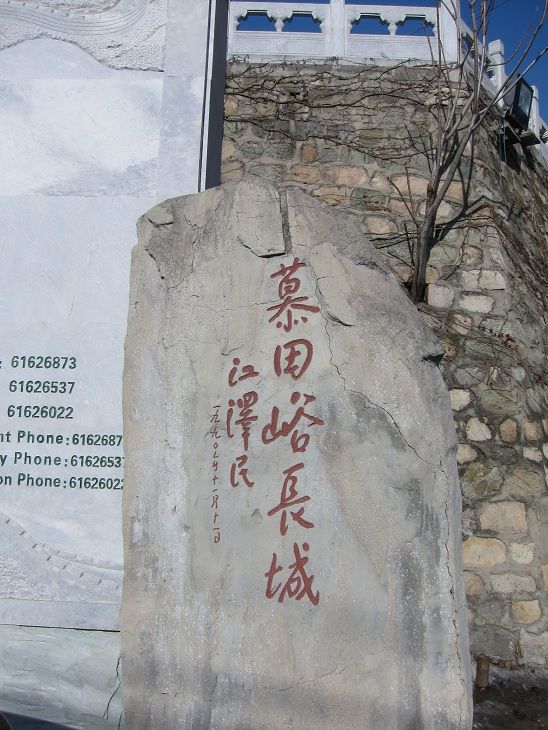 慕田峪長城
江澤民
一九九〇年十一月十一日
: 61626873
61626537
61626022
nt Phone: 6162687
y Phone: 6162653
on Phone: 6162602